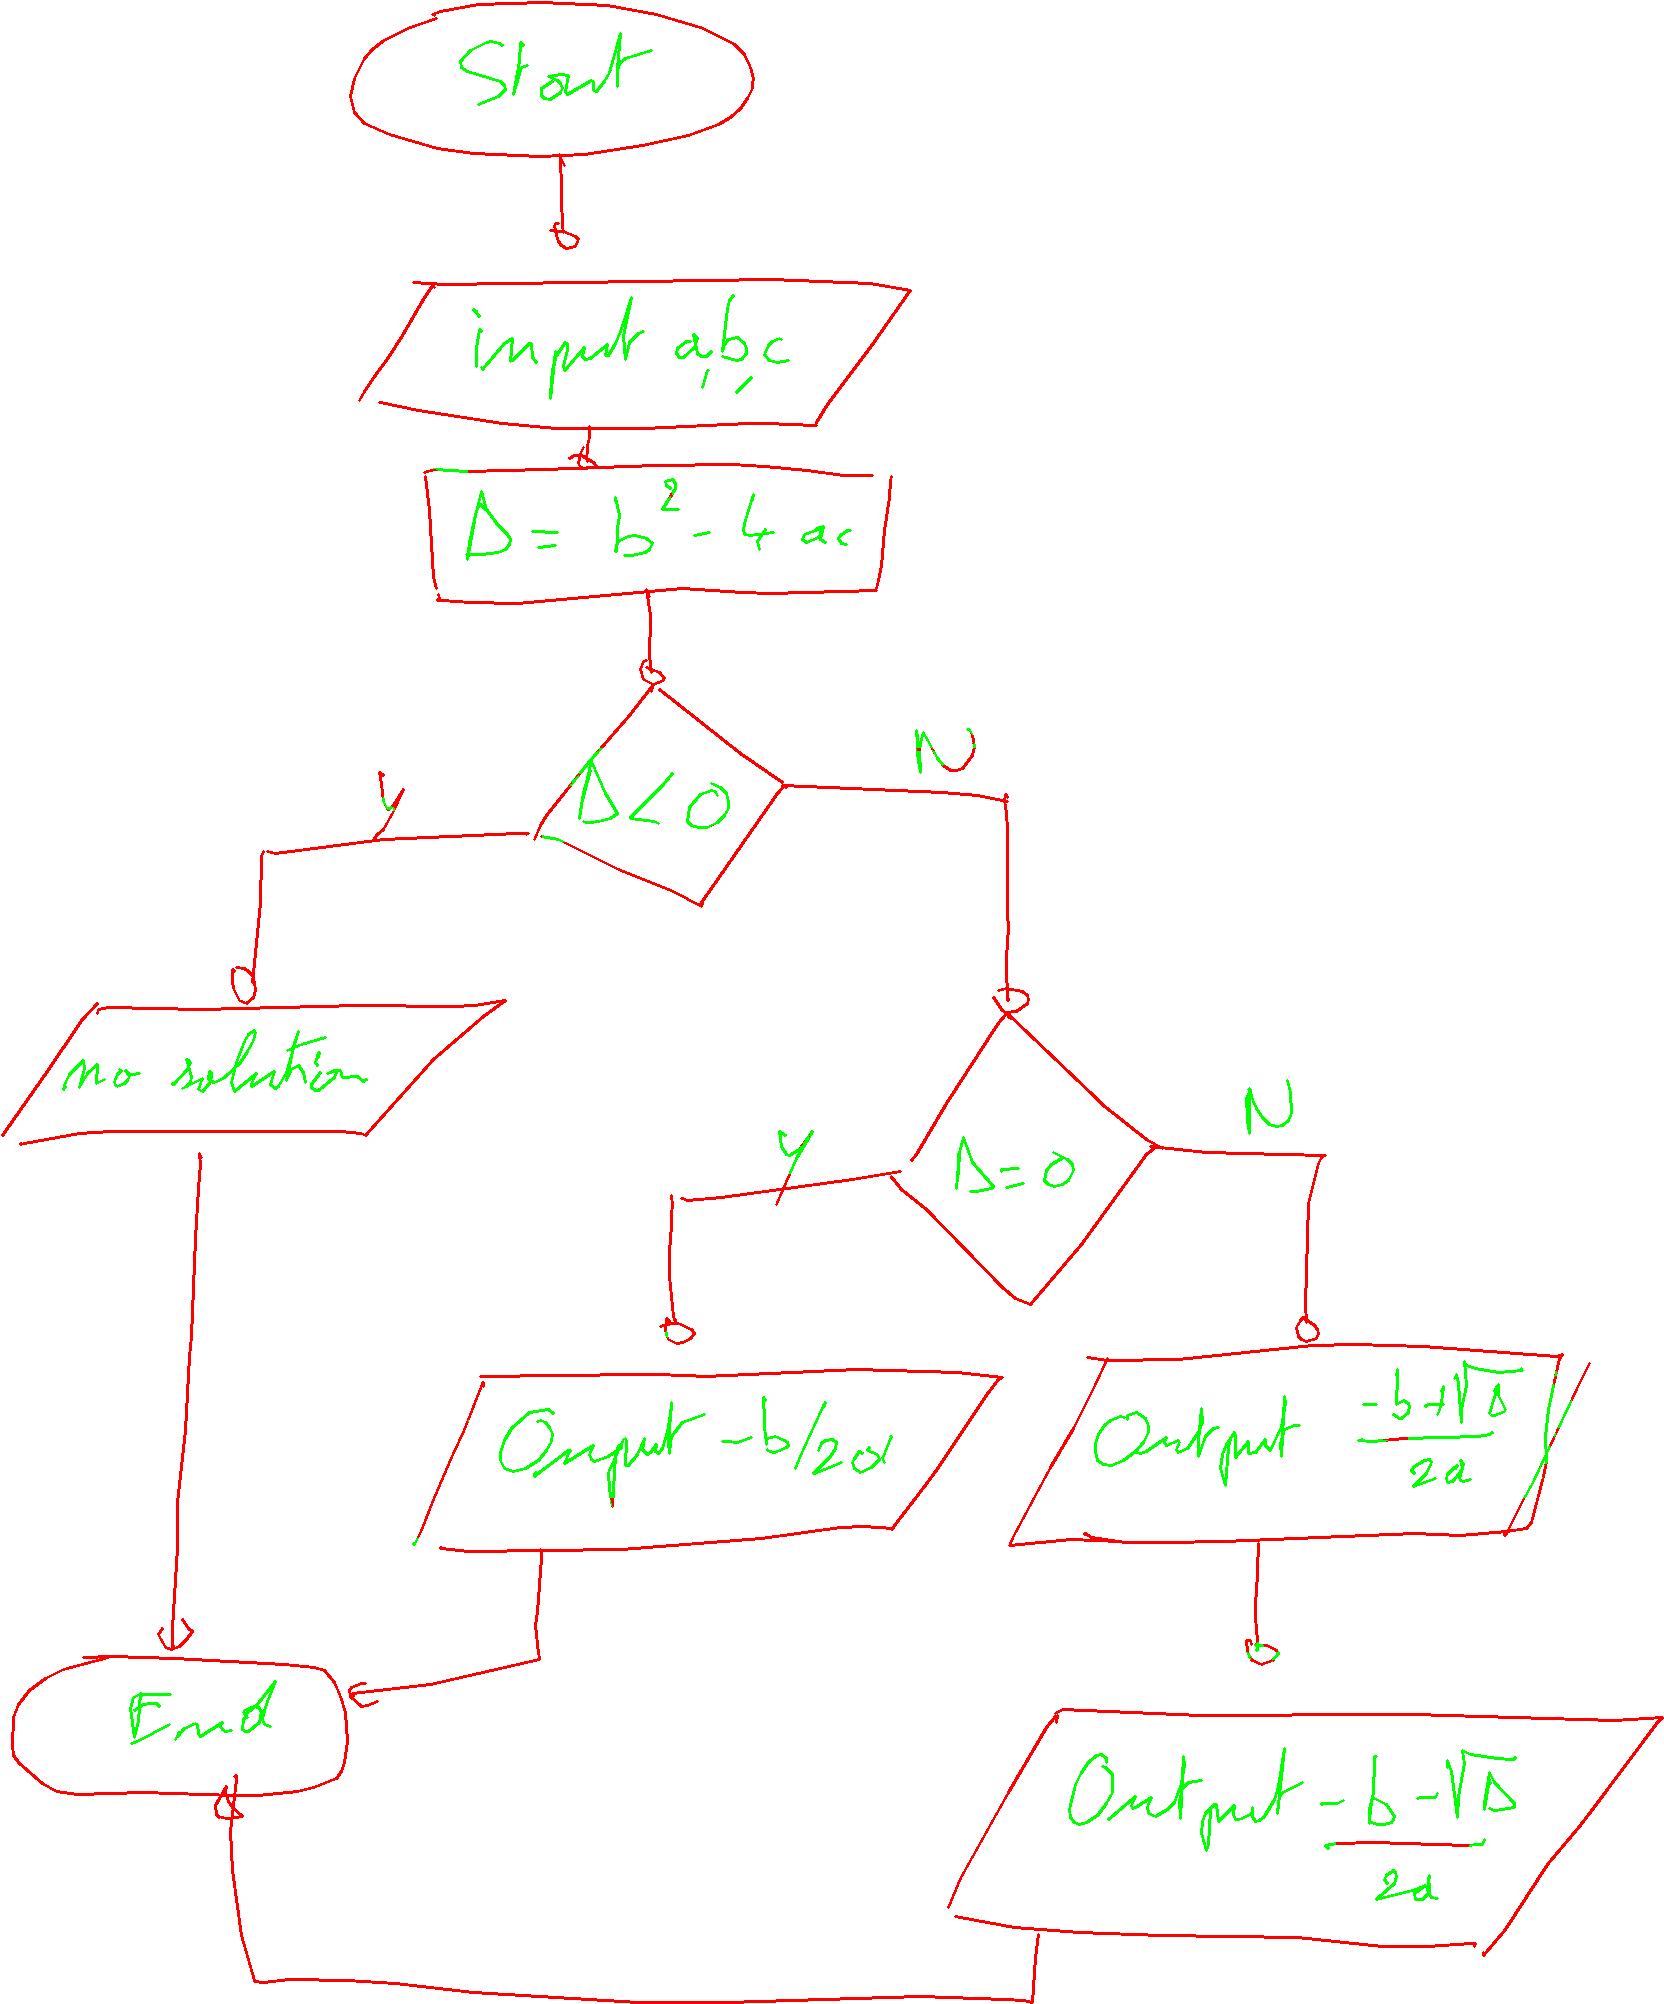 Start
input a,b,c
Δ = b² - 4ac
Δ < 0
Y
N
no solution
Δ = 0
Y
N
Output -b/2a
Output (-b+√Δ)/2a
End
Output (-b-√Δ)/2a